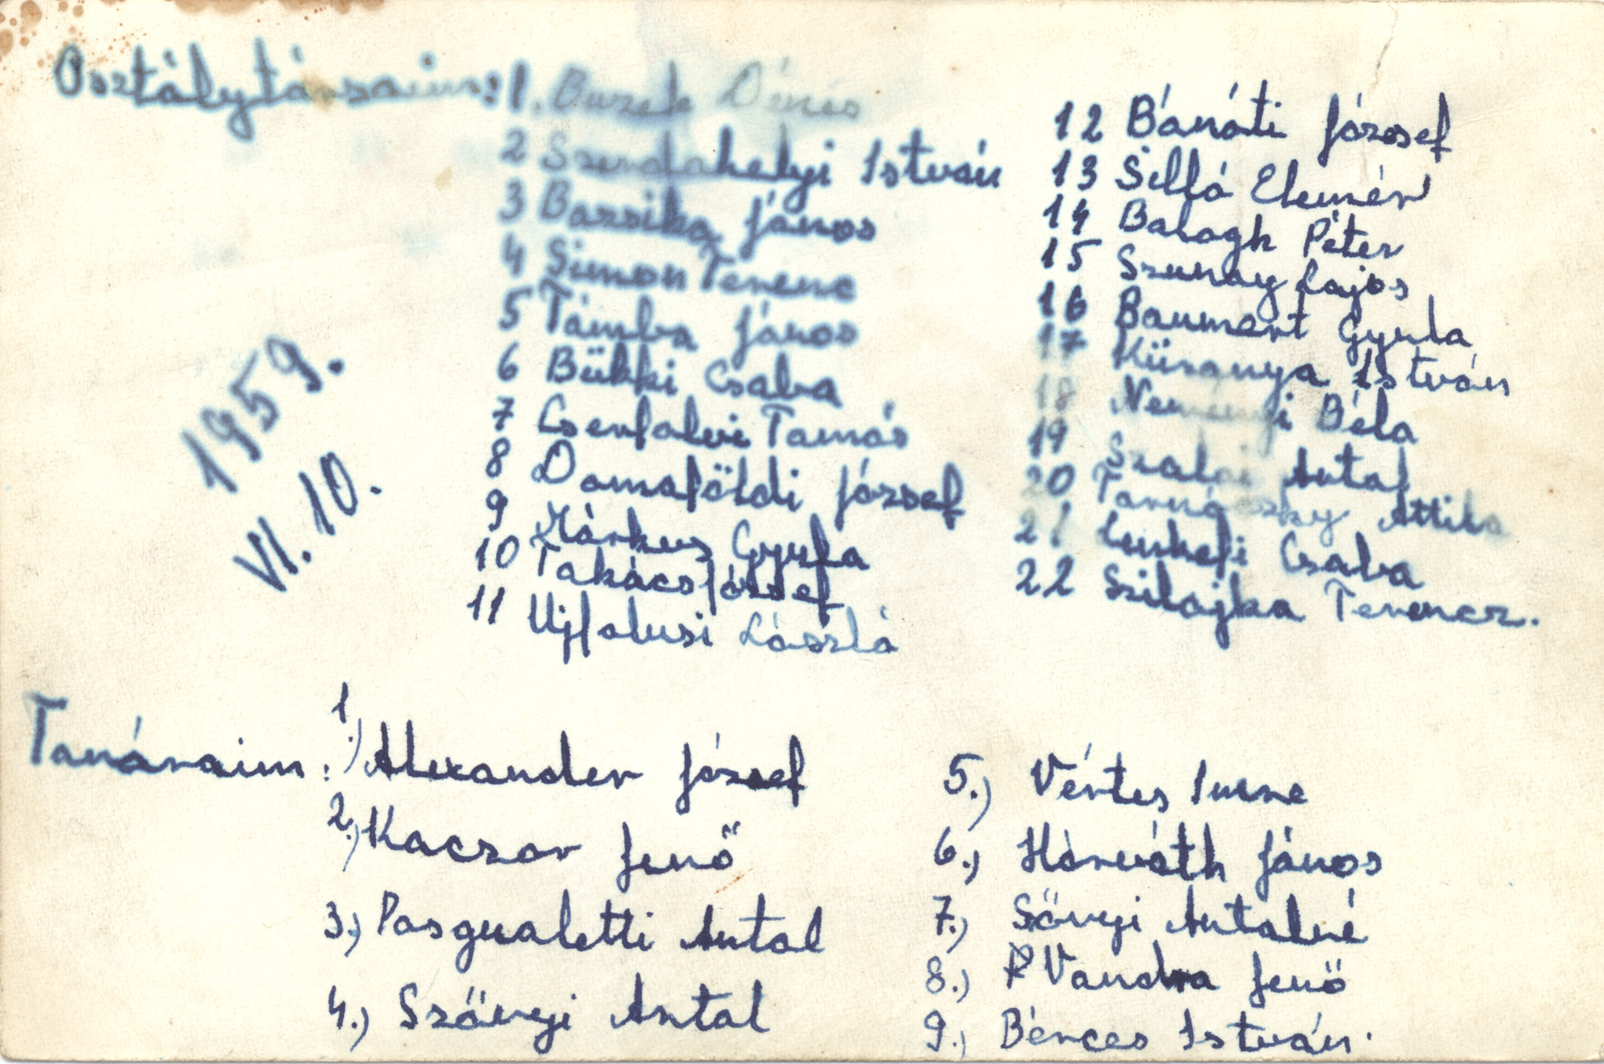 Osztálytársaim:
1. Buzek Dénes
2 Szerdahelyi István
3 Barsika János
4 Simon Ferenc
5 Támba János
6 Bükki Csaba
7 Cserfalvi Tamás
8 Damaföldi József
9 Márkus Gyula
10 Takács József
11 Ujfalusi László
12 Bánáti József
13 Silló Elemér
14 Balogh Péter
15 Szunay Lajos
16 Baumert Gyula
17 István
18 Neményi Béla
19 Szalai Antal
20 Tarnóczky Attila
21 Csaba
22 Szilajka Ferencz.
1959.
VI. 10.
Tanáraim:
1.) Alexander József
2.) Kaczor Jenő
3.) Pasqualetti Antal
4.) Szőnyi Antal
5.) Vértes Imre
6.) Horváth János
7.) Sőnyi Antalné
8.) Vandra Jenő
9.) Bences István.